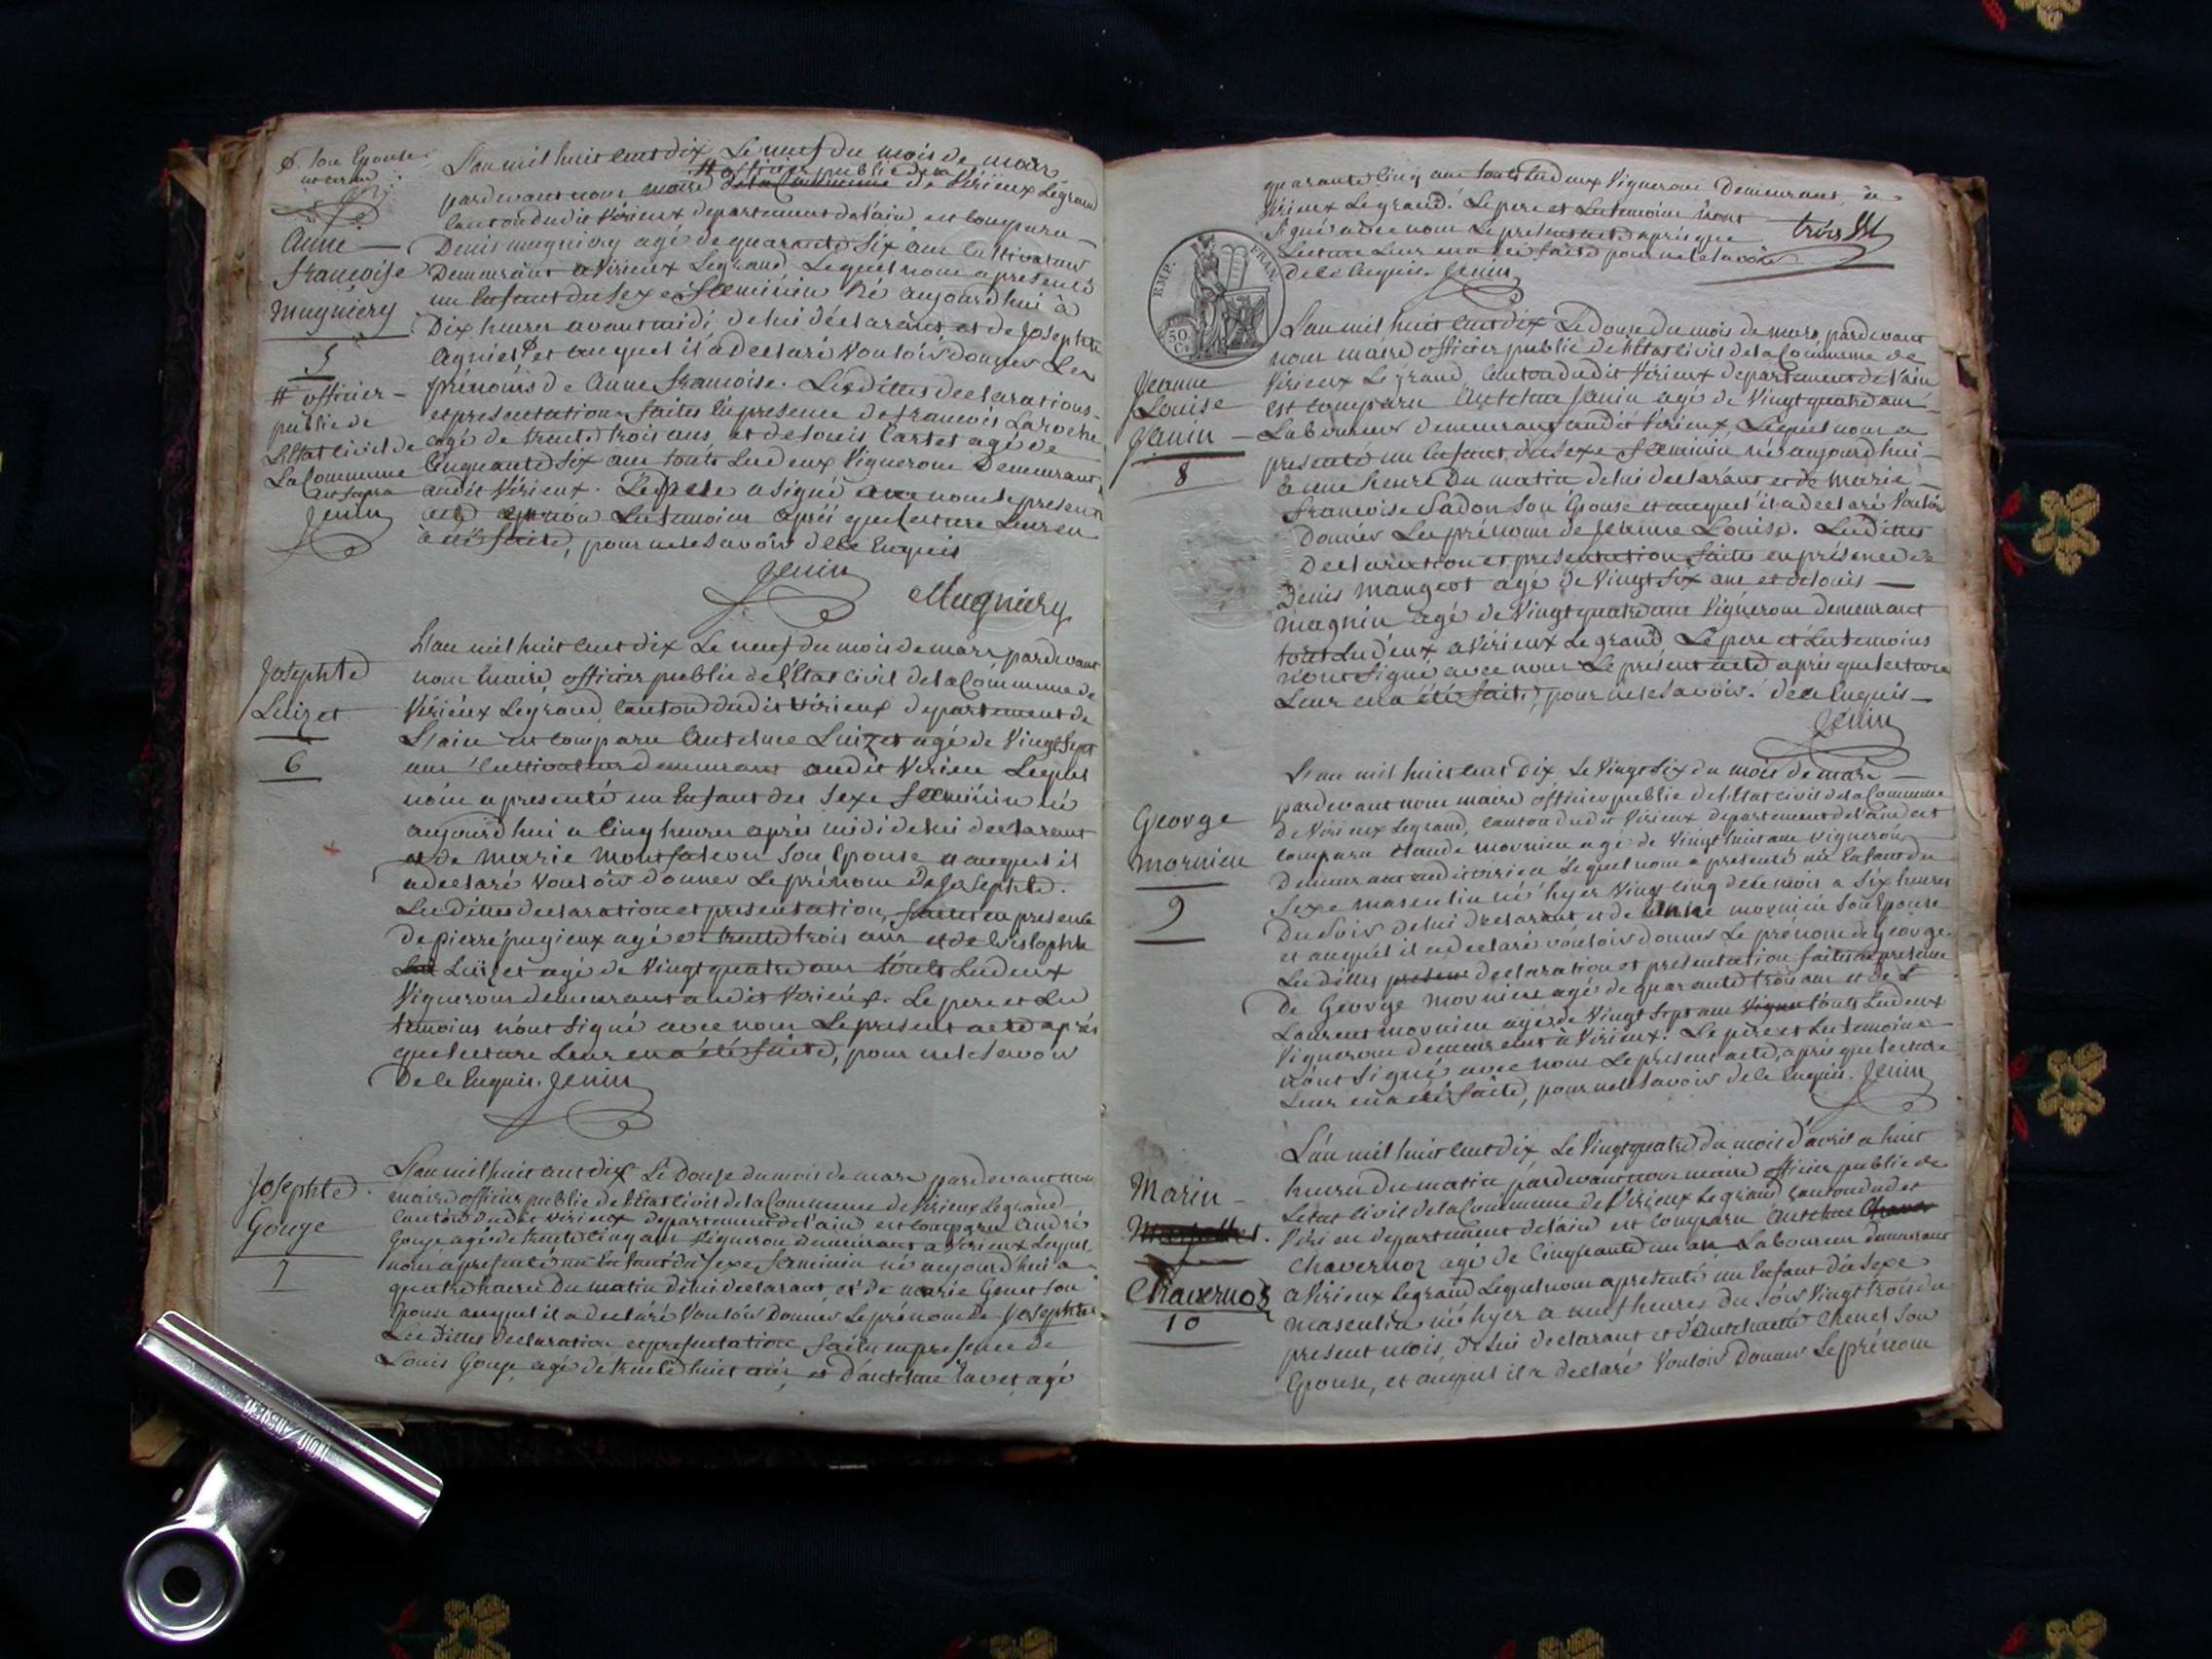 φ Son Epouse.
Anne
françoise
Mugniery
5
# officier
public de
L'Etat civil de
La Commune
ut supra
Jenin
L'an mil huit cent dix Le neuf du mois de mars
# officier public de la
pardevant nous maire de la Commune de Virieux Legrand
Canton dudit Virieux departement de l'ain est comparu
Denis mugniery agé de quarante Six ans Cultivateur
Demeurant a Virieux Legrand Lequel nous a presenté
un Enfant du Sexe Feminin Né aujourd'hui à
Dix heures avant midi de lui déclarant et de Josephte
Agniel φ et auquel il a declaré Vouloir donner Les
prénoms de Anne françoise. Lesdittes declarations
et presentation faites En presence de francois Laroche
agé de trente trois ans et de Louis Cartet agé de
Cinquante Six ans touts Les deux Vignerons Demeurant
audit Virieux. Le pere a signé avec nous le present
acte et non Les temoins aprés que lecture Leur en
a été faite, pour ne le Savoir de ce Enquis
Jenin Mugniery
Josephte
Luizet
6
L'an mil huit cent dix Le neuf du mois de mars pardevant
nous maire, officier public de l'Etat civil de la Commune de
Virieux Legrand, Canton dudit Virieux departement de
L'ain est comparu Antelme Luizet agé de Vingt Sept
ans Cultivateur demeurant audit Virieu Lequel
nous a presenté un Enfant du Sexe Feminin né
aujourd'hui a Cinq heures aprés midi de lui declarant
et de Marie Montfalcon Son Epouse et auquel il
a declaré Vouloir donner Le prénom de Josephte.
Lesdittes declaration et presentation faites en presence
de pierre pugieux agé de trente trois ans et de Cristophe
Luizet agé de Vingt quatre ans touts Les deux
Vignerons demeurant audit Virieux. Le pere et Les
temoins n'ont Signé avec nous Le present acte aprés
que lecture Leur en a été faite, pour ne le Savoir
De ce Enquis. Jenin
Josephte
Gouge
7
L'an mil huit cent dix Le Douze du mois de mars pardevant nous
maire officier public de l'Etat civil de la Commune de Virieux Legrand
Canton dudit Virieux departement de l'ain est comparu André
Gouge agé de trente Cinq ans Vigneron demeurant a Virieux Lequel
nous a presenté un Enfant du Sexe Feminin né aujourd'hui a
quatre heures Du matin de lui declarant et de marie Genet Son
Epouse auquel il a declaré Vouloir Donner Le prénom de Josephte
Lesdittes declaration et presentation faites en presence de
Louis Gouge agé de trente huit ans, et d'antelme agé
quarante Cinq ans touts Les deux Vignerons Demeurant à
Virieux Le grand. Le pere et Les temoins n'ont
Signé avec nous Le present acte aprés que
Lecture Leur en a été faite pour ne le Savoir
De ce Enquis. Jenin
EMP. FRAN.
50 C.
Jeanne
Louise
Janin
8
L'an mil huit cent dix Le Douze du mois de mars, pardevant
nous maire officier public de l'Etat civil de la Commune de
Virieux Le grand, Canton dudit Virieux departement de l'ain
est comparu Antelme Janin agé de Vingt quatre ans
Laboureur demeurant audit Virieux Lequel nous a
presenté un Enfant du Sexe Feminin, né aujourd'hui
a une heure Du matin de lui declarant et de Marie
francoise Sadon Son Epouse et auquel il a declaré Vouloir
Donner Les prénoms de Jeanne Louise. Lesdittes
Declaration et presentation faites en présence de
Denis Mangeot agé de Vingt Six ans et de Louis
Magnin agé de Vingt quatre ans Vignerons demeurant
touts Les deux a Virieux Le grand, Le pere et Les temoins
n'ont Signé avec nous Le présent acte aprés que lecture
Leur en a été faite, pour ne le Savoir. de ce Enquis
Jenin
George
mornieu
9
L'an mil huit cent dix Le Vingt Six du mois de mars
pardevant nous maire officier public de l'Etat civil de la Commune
de Virieux Legrand, Canton dudit Virieux departement de l'ain est
comparu Claude mornieu agé de Vingt huit ans Vigneron
demeurant audit Virieu Lequel nous a presenté un Enfant du
Sexe masculin né hyer Vingt Cinq de ce mois a Six heures
Du Soir de lui declarant et de mornieu Son Epouse
et auquel il a declaré vouloir donner Le prénom de George
Lesdittes declaration et presentation faites en presence
De George Mornieu agé de quarante trois ans et de
Laurent mornieu agé de Vingt Sept ans touts Les deux
Vignerons demeurant à Virieux. Le père et Les temoins
n'ont Signé avec nous Le present acte, aprés que lecture
Leur en a été faite, pour ne le Savoir de ce Enquis. Jenin
Marin
Chavernoz
10
L'an mil huit cent dix Le Vingt quatre du mois d'avril a huit
heures Du matin pardevant nous maire officier public de
L'etat civil de la Commune de Virieux Le grand Canton dudit
Virieu departement de l'ain est comparu Antelme
Chavernoz agé de Cinquante un an Laboureur demeurant
a Virieux Legrand Lequel nous a presenté un Enfant du Sexe
masculin né hyer a neuf heures du Soir Vingt trois du
present mois, de lui declarant et d'Antelmette Chenet Son
Epouse, et auquel il a declaré Vouloir Donner Le prénom